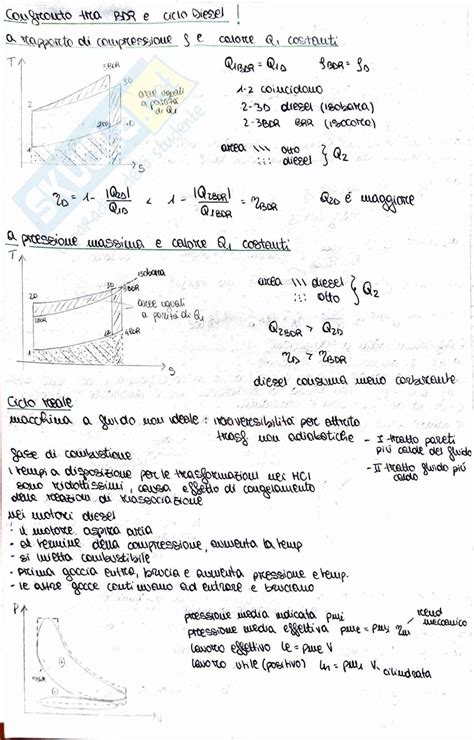 Confronto tra BDR e ciclo Diesel!
a rapporto di compressione ρ e calore Q1 costanti
T
3BDR
3D
2
aree uguali
a parità
di Q1
4D
4BDR
1
S
Q1BDR = Q1D ρBDR = ρD
1-2 coincidono
2-3D diesel (isobara)
2-3BDR BDR (isocora)
area \\\ otto
::: diesel } Q2
ηD = 1 - |Q2D| / Q1D < 1 - |Q2BDR| / Q1BDR = ηBDR Q2D è maggiore
a pressione massima e calore Q1 costanti
T
isobara
3D
3BDR
2D
2BDR
aree uguali
a parità di Q1
4BDR
1
S
area \\\ diesel
::: otto } Q2
Q2BDR > Q2D
ηD > ηBDR
diesel consuma meno carburante
Ciclo reale
macchina a fluido non ideale: irreversibilità per attrito
trasf non adiabatiche - I tratto pareti
più calde del fluido
- II tratto fluido più
caldo
fase di combustione
i tempi a disposizione per le trasformazioni nei MCI
sono ridottissimi, causa effetto di congelamento
delle reazioni di riassociazione
nei motori diesel
· il motore aspira aria
· al termine della compressione, aumenta la temp
· si inietta combustibile
· prima goccia entra, brucia e aumenta pressione e temp.
· le altre gocce continuano ad entrare e bruciano
P
V
pressione media indicata pmi
pressione media effettiva pme = pmi ηm rend
meccanico
lavoro effettivo le = pme V
lavoro utile (positivo) li = pmi V cilindrata